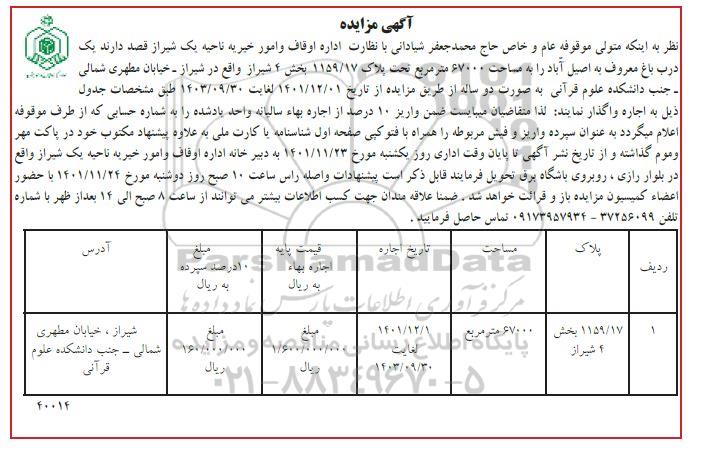 آگهي مزايده
نظر به اينكه متولى موقوفه عام و خاص حاج محمدجعفر شيادانى با نظارت اداره اوقاف وامور خيريه ناحيه يک شيراز قصد دارند يک
درب باغ معروف به اصيل آباد را به مساحت ۶۷۰۰۰ مترمربع تحت پلاک ۱۱۵۹/۱۷ بخش ۴ شيراز واقع در شيراز ـ خيابان مطهرى شمالى
ـ جنب دانشكده علوم قرآنى به صورت دو ساله از طريق مزايده از تاريخ ۱۴۰۱/۱۲/۰۱ لغايت ۱۴۰۳/۰۹/۳۰ طبق مشخصات جدول
ذيل به اجاره واگذار نمايند: لذا متقاضيان ميبايست ضمن واريز ۱۰ درصد از اجاره بهاء ساليانه واحد يادشده را به شماره حسابى كه از طرف موقوفه
اعلام ميگردد به عنوان سپرده واريز و فيش مربوطه را همراه با فتوكپى صفحه اول شناسنامه يا كارت ملى به علاوه پيشنهاد مكتوب خود در پاكت مهر
وموم گذاشته و از تاريخ نشر آگهى تا پايان وقت ادارى روز يكشنبه مورخ ۱۴۰۱/۱۱/۲۳ به دبير خانه اداره اوقاف وامور خيريه ناحيه يک شيراز واقع
در بلوار رازى ، روبروى باشگاه برق تحويل فرمايند قابل ذكر است پيشنهادات واصله راس ساعت ۱۰ صبح روز دوشنبه مورخ ۱۴۰۱/۱۱/۲۴ با حضور
اعضاء كميسيون مزايده باز و قرائت خواهد شد . ضمنا علاقه مندان جهت كسب اطلاعات بيشتر مى توانند از ساعت ۸ صبح الى ۱۴ بعداز ظهر با شماره
تلفن ۳۷۲۵۶۰۹۹ - ۰۹۱۷۳۹۵۷۹۳۴ تماس حاصل فرماييد .
رديف پلاک مساحت تاريخ اجاره قيمت پايه مبلغ آدرس
اجاره بهاء ۱۰درصد سپرده
به ريال به ريال
۱ ۱۱۵۹/۱۷ بخش ۶۷۰۰۰ مترمربع ۱۴۰۱/۱۲/۱ مبلغ مبلغ شيراز ، خيابان مطهرى
۴ شيراز لغايت ۱/۶۰۰/۰۰۰/۰۰۰ ۱۶۰/۰۰۰/۰۰۰ شمالى ـ جنب دانشكده علوم
۱۴۰۳/۰۹/۳۰ ريال ريال قرآنى
۴۰۰۱۴
ParsNamadData
مركز فرآورى اطلاعات پارس نماد داده ها
پايگاه اطلاع رسانى مناقصه و مزايده
۰۲۱-۸۸۳۴۹۶۷۰-۵